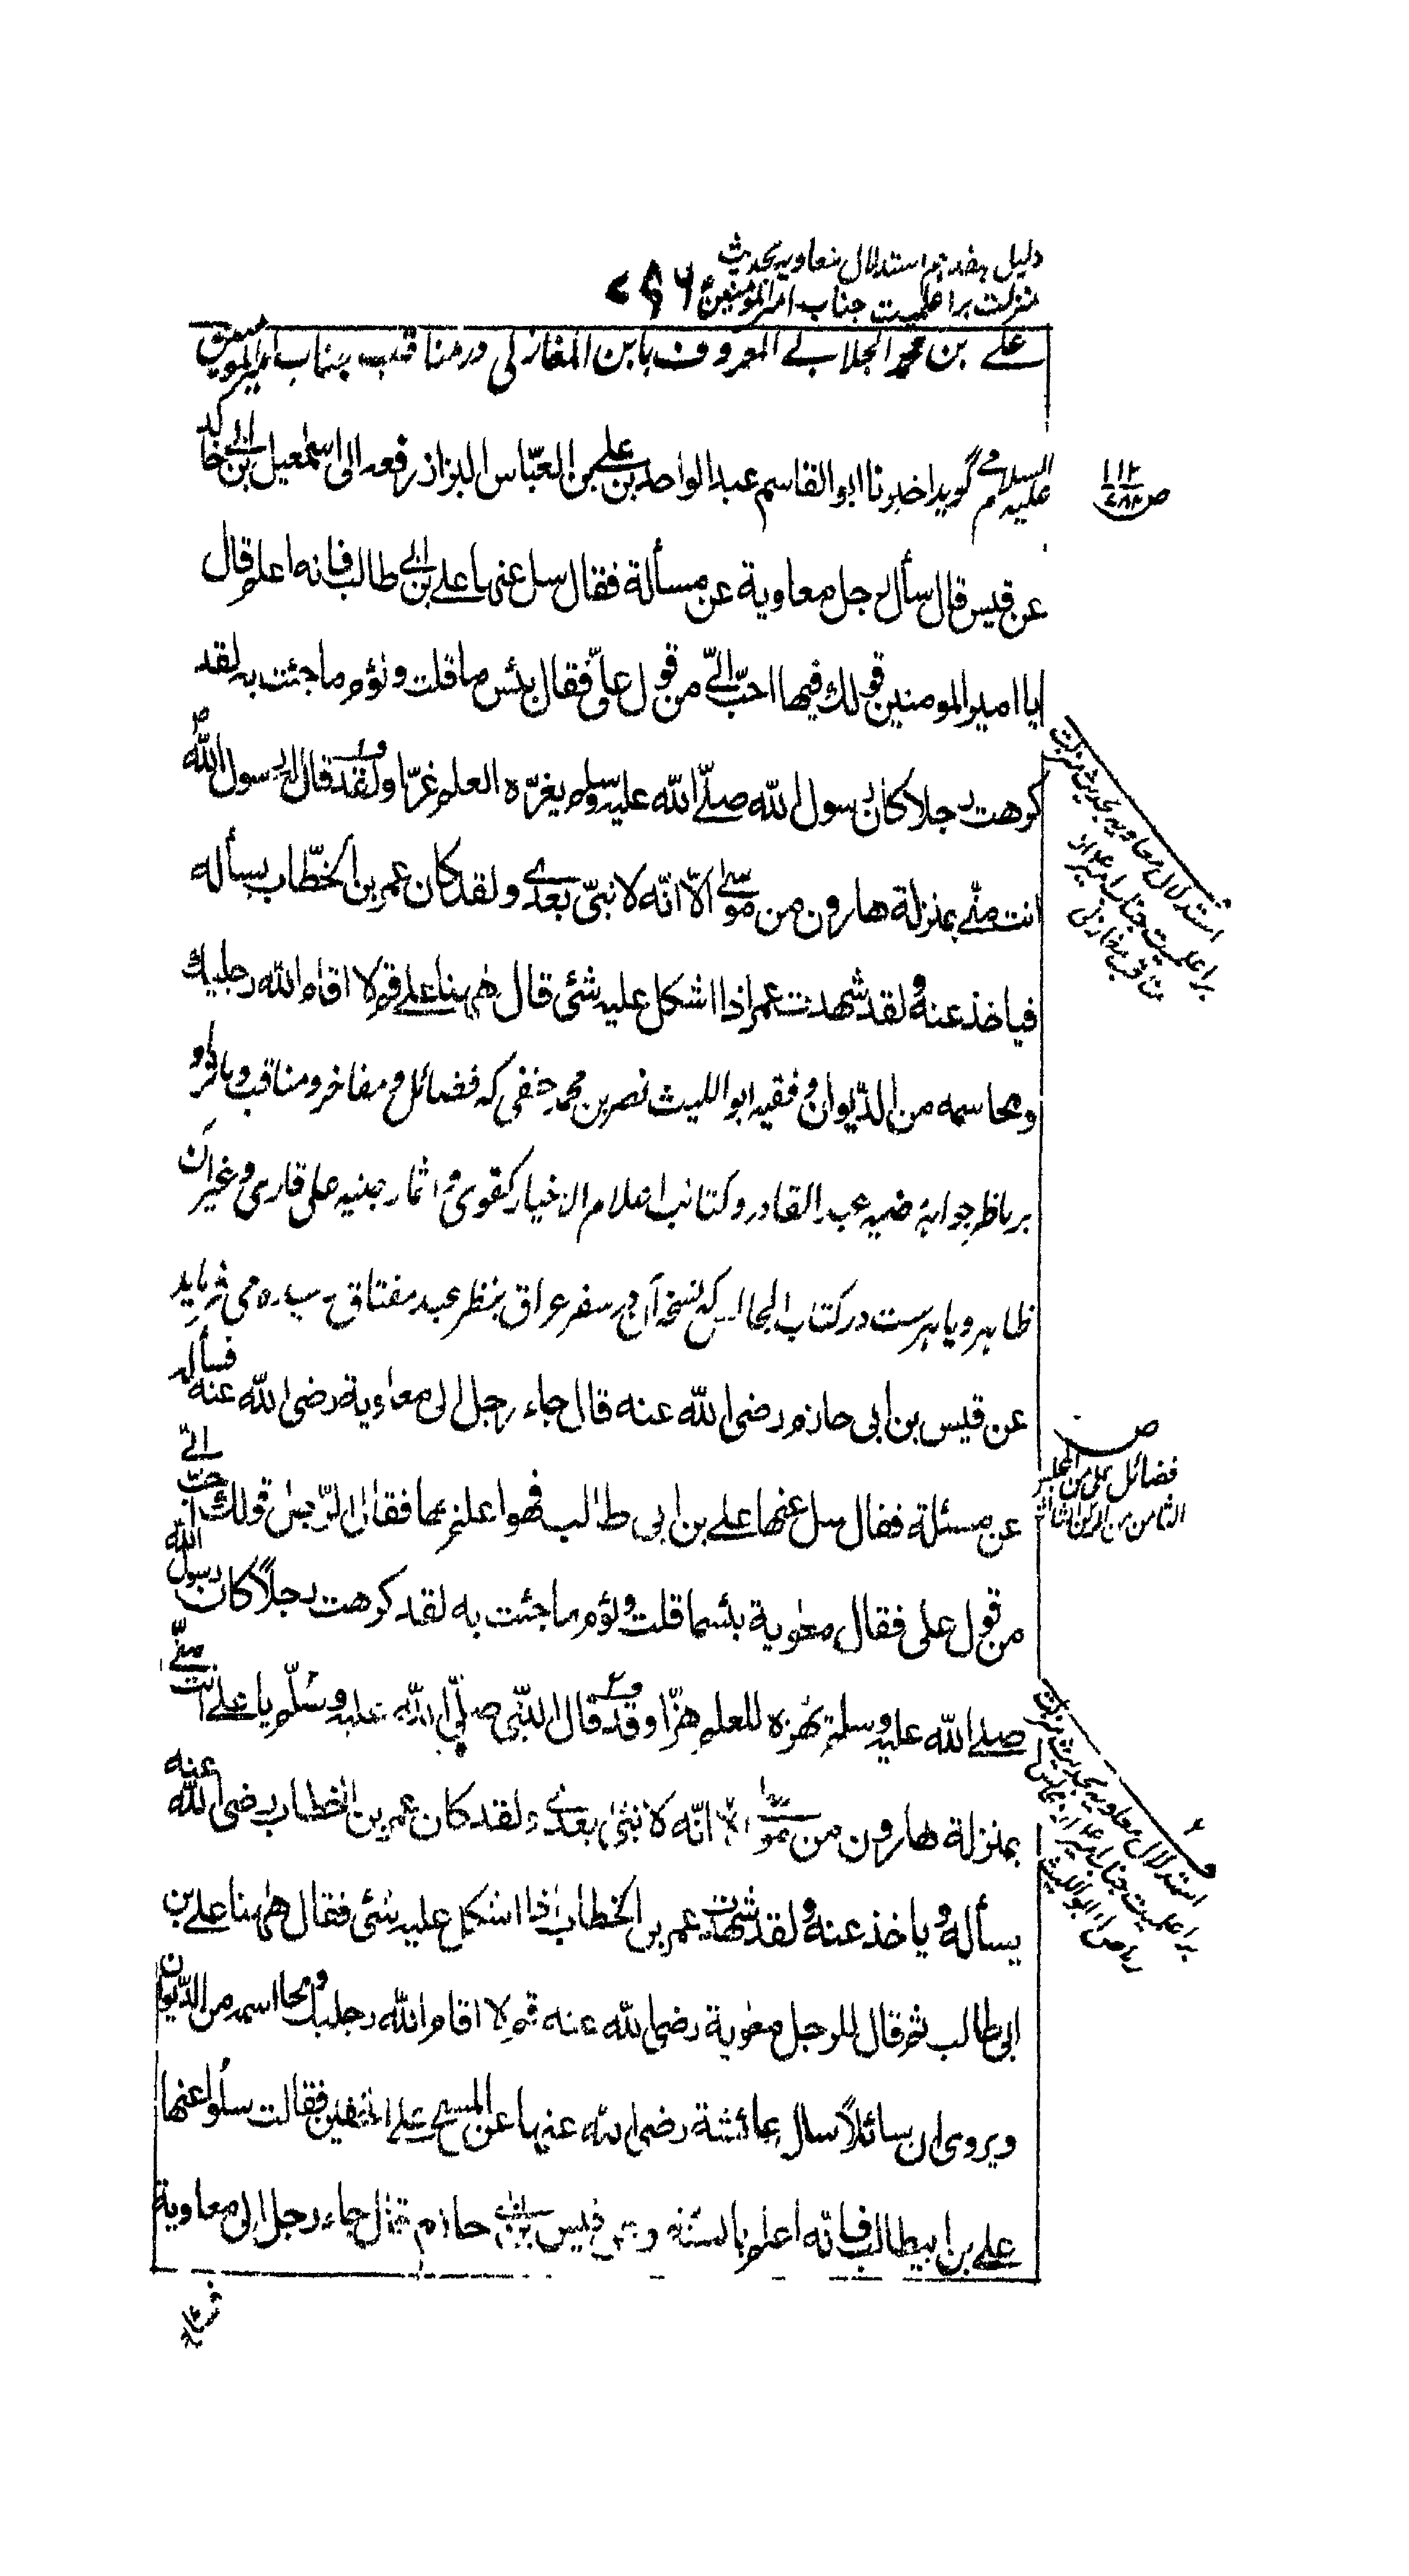 دلیل هفدهم استدلال معاویه بحدیث
منزلت بر اعلمیت جناب امیرالمومنین ع ۷۵۶
علی بن محمد الجلابی المعروف بابن المغازلی در مناقب جناب امیرالمومنین
علیه السلام می گوید اخبرنا ابوالقاسم عبدالواحد بن علی بن العبّاس البزاز رفعه الی اسمعیل بن ابی خالد
عن قیس قال سأل رجل معاویة عن مسألة فقال سل عنها علی بن ابی طالب فانه اعلم قال
یا امیرالمومنین قولك فیها احبّ الیّ من قول علیّ فقال بئس ما قلت و لؤم ما جئت به لقد
کرهت رجلا کان رسول الله صلّی الله علیه وسلم یغرّه العلم غرّا ولقد قال له رسول الله ص
انت منّی بمنزلة هارون من موسی الّا انّه لا نبیّ بعدی ولقد کان عمر بن الخطّاب یسأله
فیاخذ عنه ولقد شهدت عمر اذا اشکل علیه شئ قال ههنا علی قم لا اقام الله رجلیك
و محا اسمه من الدّیوان و فقیه ابواللیث نصر بن محمد حنفی که فضائل و مفاخر و مناقب و مآثر او
بر ناظر جواهر مضیه عبدالقادر و کتائب اعلام الاخیار کفوی و اثمار جنیه علی قاری و غیر آن
ظاهر و باهرست در کتاب المجالس که نسخه آن در سفر عراق بنظر عبد مفتاق رسیده می فرماید
عن قیس بن ابی حازم رضی الله عنه قال جاء رجل الی معاویة رضی الله عنه فسأله
عن مسئلة فقال سل عنها علی بن ابی طالب فهو اعلم بها فقال الرّجل قولك احبّ الیّ
من قول علی فقال معویة بئسما قلت و لؤم ما جئت به لقد کرهت رجلاً کان رسول الله
صلی الله علیه وسلم یهزه للعلم هزّا وقد قال النّبی صلّی الله علیه وسلّم یا علی انت منّی
بمنزلة هارون من موسی الا انّه لا نبیّ بعدی ولقد کان عمر بن الخطاب رضی الله عنه
یسأله ویاخذ عنه ولقد شهدت عمر بن الخطاب اذا اشکل علیه شئ فقال ههنا علی بن
ابی طالب ثم قال للرجل معویة رضی الله عنه قم لا اقام الله رجلیك و محا اسمه من الدّیوان
ویروی ان سائلاً سال عائشة رضی الله عنها عن المسح علی الخفین فقالت سلوا عنها
علی بن ابیطالب فانه اعلم بالسنّه وعن قیس بن ابی حازم قال جاء رجل الی معاویة
ص ۱۱۲
استدلال معاویه بحدیث منزلت
بر اعلمیت جناب امیر ع از
مناقب مغازلی
ص
فضائل علی من المجلس
الثامن من
۲
استدلال معاویه بحدیث منزلت
بر اعلمیت جناب امیر ع از مجالس
ابواللیث